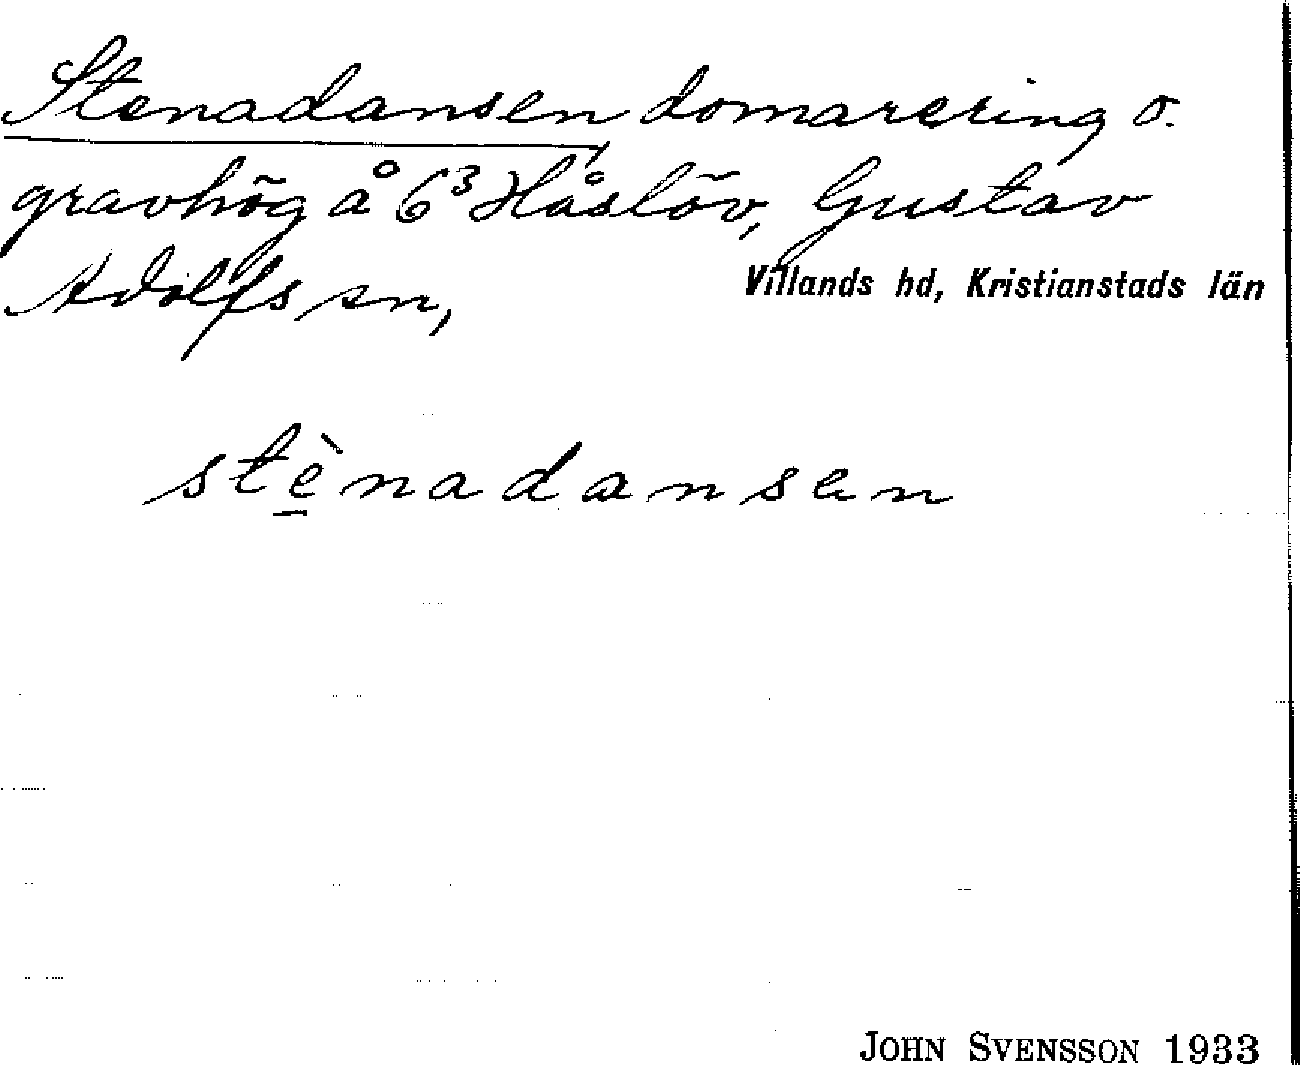 Stenadansen domarering o.
gravhög å 6³ Håslöv, Gustav
Adolfs sn, Villands hd, Kristianstads län
stè̱nadansen
JOHN SVENSSON 1933